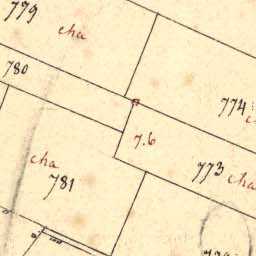 779
cha
780
774
7.6
cha
773
cha
781